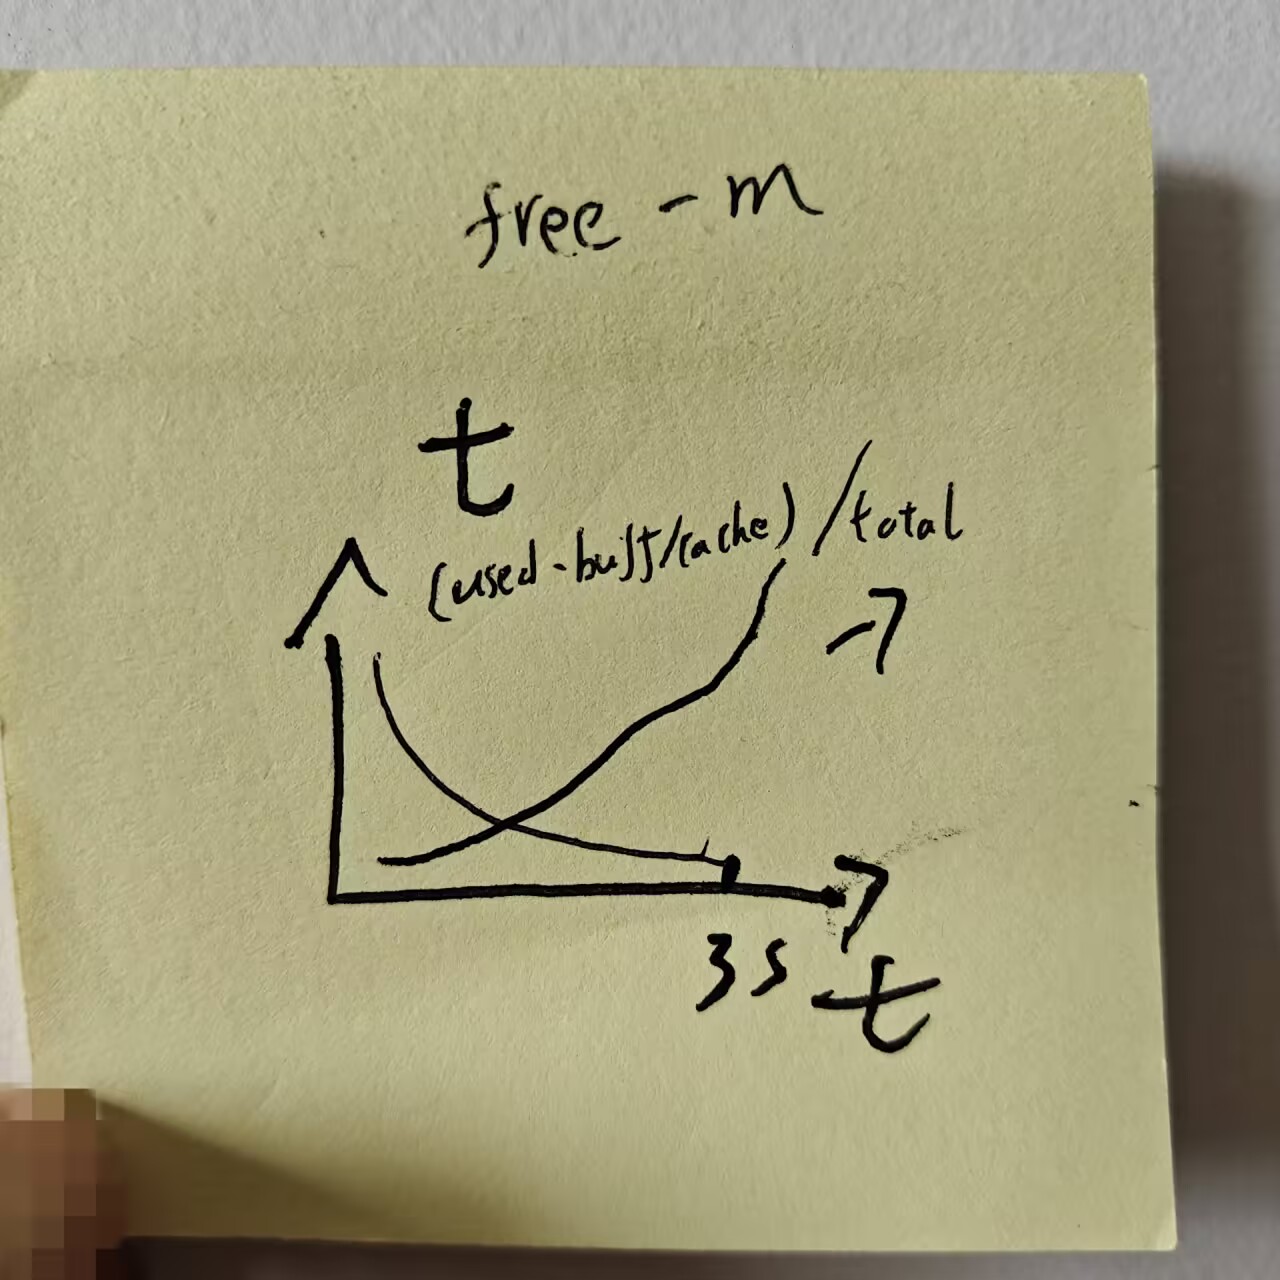 free -m
t
(used-buff/cache)/total
3s
t